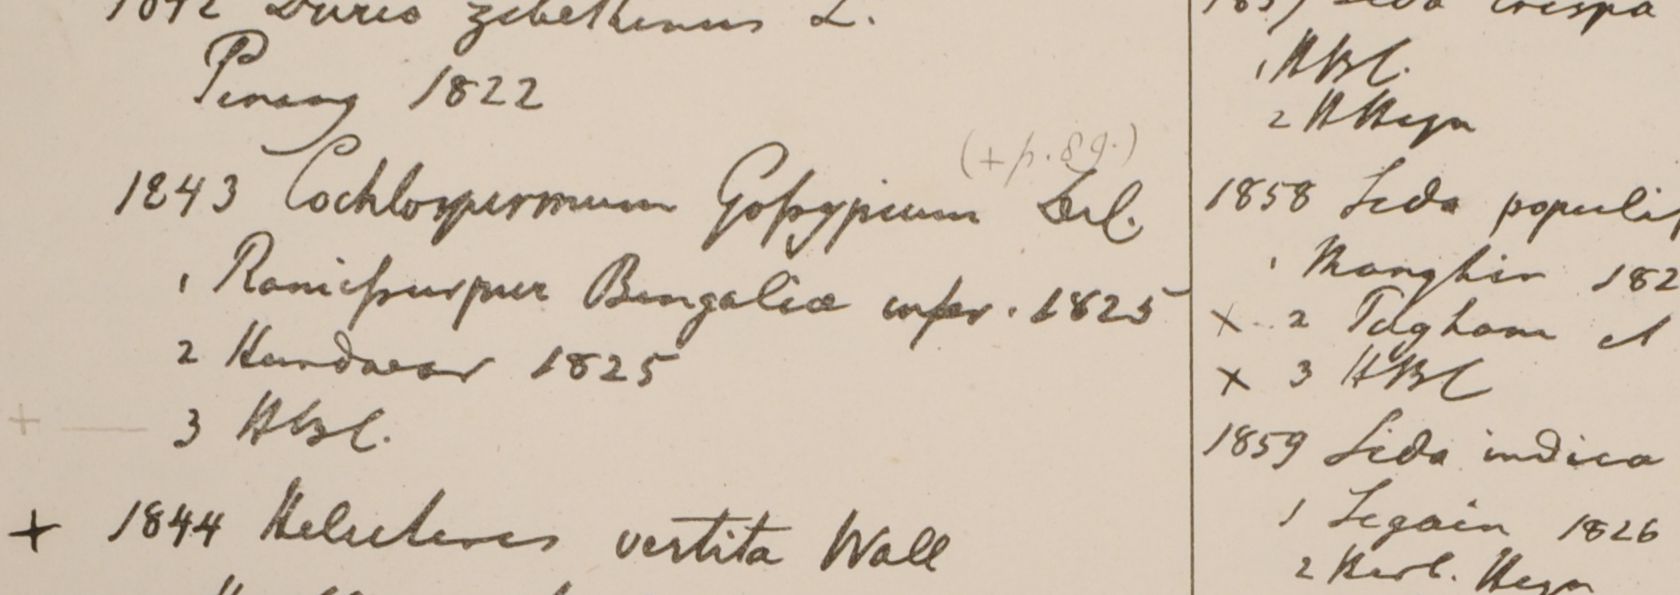 1842 Durio zibethinus L.
Penang 1822
(+ p. 89.)
1843 Cochlospermum Gossypium
1 Bengaliæ infer. 1825
2 Hurdwar 1825
3 HBC.
+ 1844 Helicteres vestita Wall
1857 Sida crispa
1 HBC.
2 HHeyn
1858 Sida populif
1 182
× 2 et
× 3 HBC
1859 Sida indica
1 Segain 1826
2 Herb. Heyn